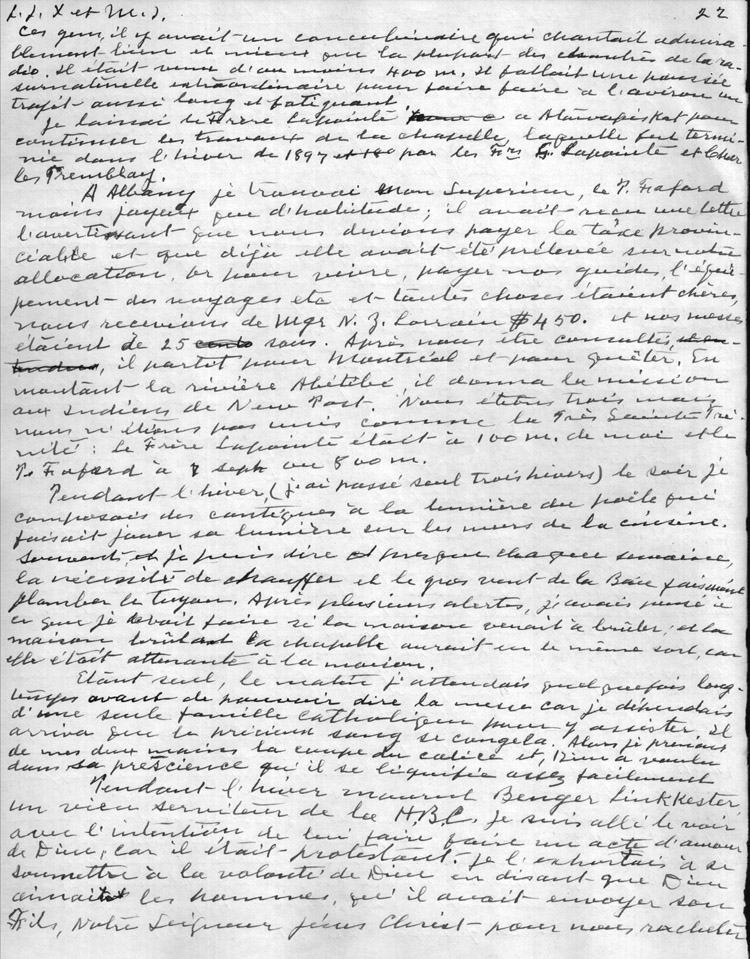 L. J. X et M. I. 22
Ces gens, il y avait un concubinaire qui chantait admira
blement bien et mieux que la plupart des chantres de la ra-
dio. Il était venu d'au moins 400 m. Il fallait une poussée
surnaturelle extraordinaire pour faire faire à l'aviron un
trajet aussi long et fatiguant
Je laissai le Frère Lapointe à Attawapiskat pour
continuer les travaux de la chapelle, laquelle fut termi-
née dans l'hiver de 1897 et par les Frs G. Lapointe et Char
les Tremblay.
A Albany je trouvai mon Supérieur, le P. Fafard
moins joyeux que d'habitude; il avait reçu une lettre
l'avertissant que nous devions payer la taxe provin-
ciale et que déjà elle avait été prélevée sur notre
allocation, or pour vivre, payer nos guides, l'équi
pement des voyages etc et toutes choses étaient chères,
nous recevions de Mgr N. Z. Lorrain $450. et nos messes
étaient de 25 cents sous. Après nous être consultés,
il partit pour Montréal et pour quêter. En
montant la rivière Abitibi, il donna la mission
aux Indiens de New Post. Nous étions trois mais
nous n'étions pas unis comme la Très Sainte Tri-
nité: le Frère Lapointe était à 100 m. de moi et le
P. Fafard à 7 sept ou 800 m.
Pendant l'hiver, (j'ai passé seul trois hivers) le soir je
composais des cantiques à la lumière du poêle qui
faisait jouer sa lumière sur les murs de la cuisine.
Souvent, et je puis dire presque chaque semaine,
la nécessité de chauffer et le gros vent de la Baie faisaient
flamber le tuyau. Après plusieurs alertes, j'avais pensé à
ce que je devrait faire si la maison venait à brûler, et la
maison brûlant la chapelle aurait eu le même sort, car
elle était attenante à la maison.
Etant seul, le matin j'attendais quelquefois long-
temps avant de pouvoir dire la messe car je dépendais
d'une seule famille catholique pour y assister. Il
arriva que le précieux sang se congela. Alors je prenais
de mes deux mains la coupe du calice et, Dieu a voulu
dans sa prescience qu'il se liquifia assez facilement
Pendant l'hiver mourut Benger Linkkester,
un vieu serviteur de la H.B.C. je suis allé le voir
avec l'intention de lui faire faire un acte d'amour
de Dieu, car il était protestant. je l'exhortais à se
soumettre à la volonté de Dieu en disant que Dieu
aimait les hommes, qu'il avait envoyer son
Fils, Notre Seigneur Jésus Christ pour nous racheter